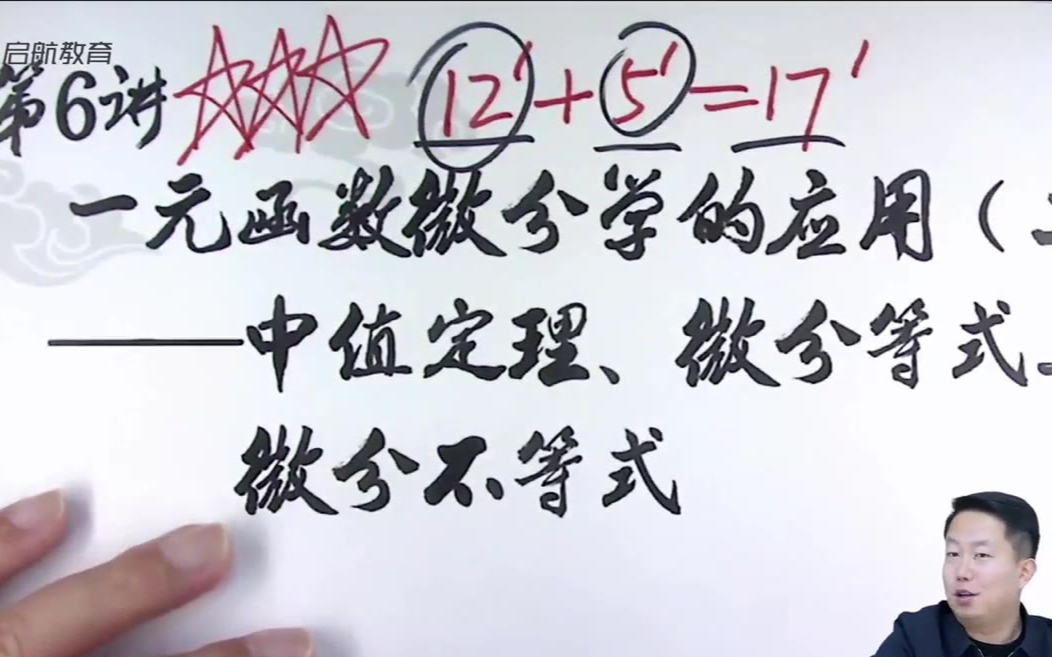 启航教育
第6讲 12′+5′=17′
一元函数微分学的应用(
——中值定理、微分等式
微分不等式